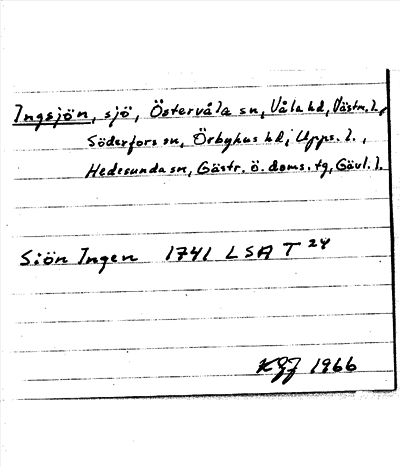 Ingsjön, sjö, Östervåla sn, Våla hd, Västm. l.,
Söderfors sn, Örbyhus hd, Upps. l.,
Hedesunda sn, Gästr. ö. doms. tg, Gävl. l.
Siön Ingen 1741 LSA T 24
KGJ 1966